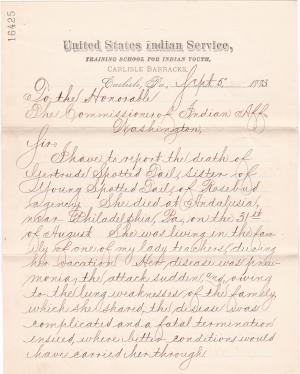 16425
United States Indian Service,
TRAINING SCHOOL FOR INDIAN YOUTH,
CARLISLE BARRACKS,
Carlisle, Pa., Sept 5 1883
To the Honorable
The Commissioner of Indian Aff
Washington,
Sir:
I have to report the death of
Gertrude Spotted Tail, sister of
Young Spotted Tail, of Rosebud
Agency. She died at Andalusia,
near Philadelphia, Pa, on the 31st
of August. She was living in the fam
ily of one of my lady teachers, during
her vacation. Her disease was pneu
monia, the attack sudden, and, owing
to the lung weaknesses of the family,
which she shared, the disease was
complicated and a fatal termination
ensued, where better conditions would
have carried her through.